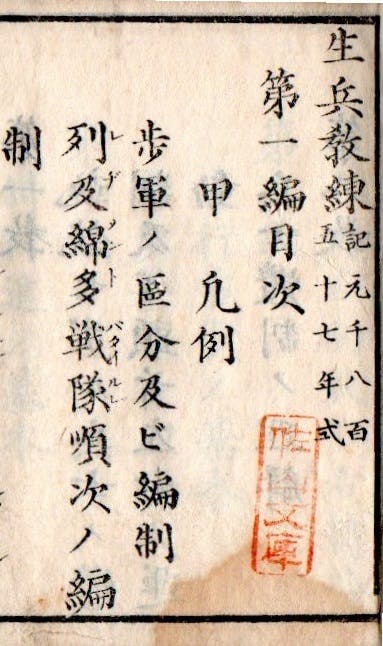 生兵教練
記元千八百
五十七年式
第一編目次
甲 凡例
歩軍ノ區分及ビ編制
レヂメント バタイルレ
列及綿多戦隊順次ノ編
制
文庫